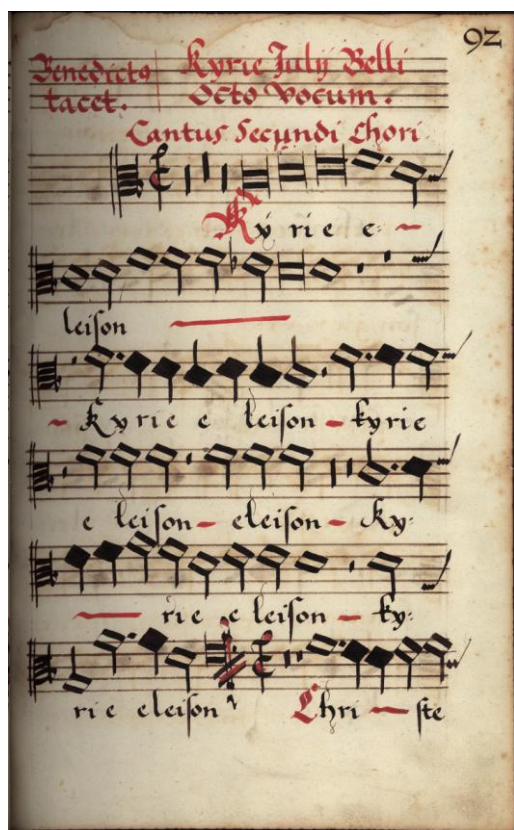 92
Benedictꝰ Kyrie Julij Belli
tacet. Octo Vocum.
Cantus Secundi Chori
Kyrie e -
leison
- Kyrie e leison - kyrie
e leison - eleison - Ky:
rie e leison - ky:
rie eleison Chri - ste